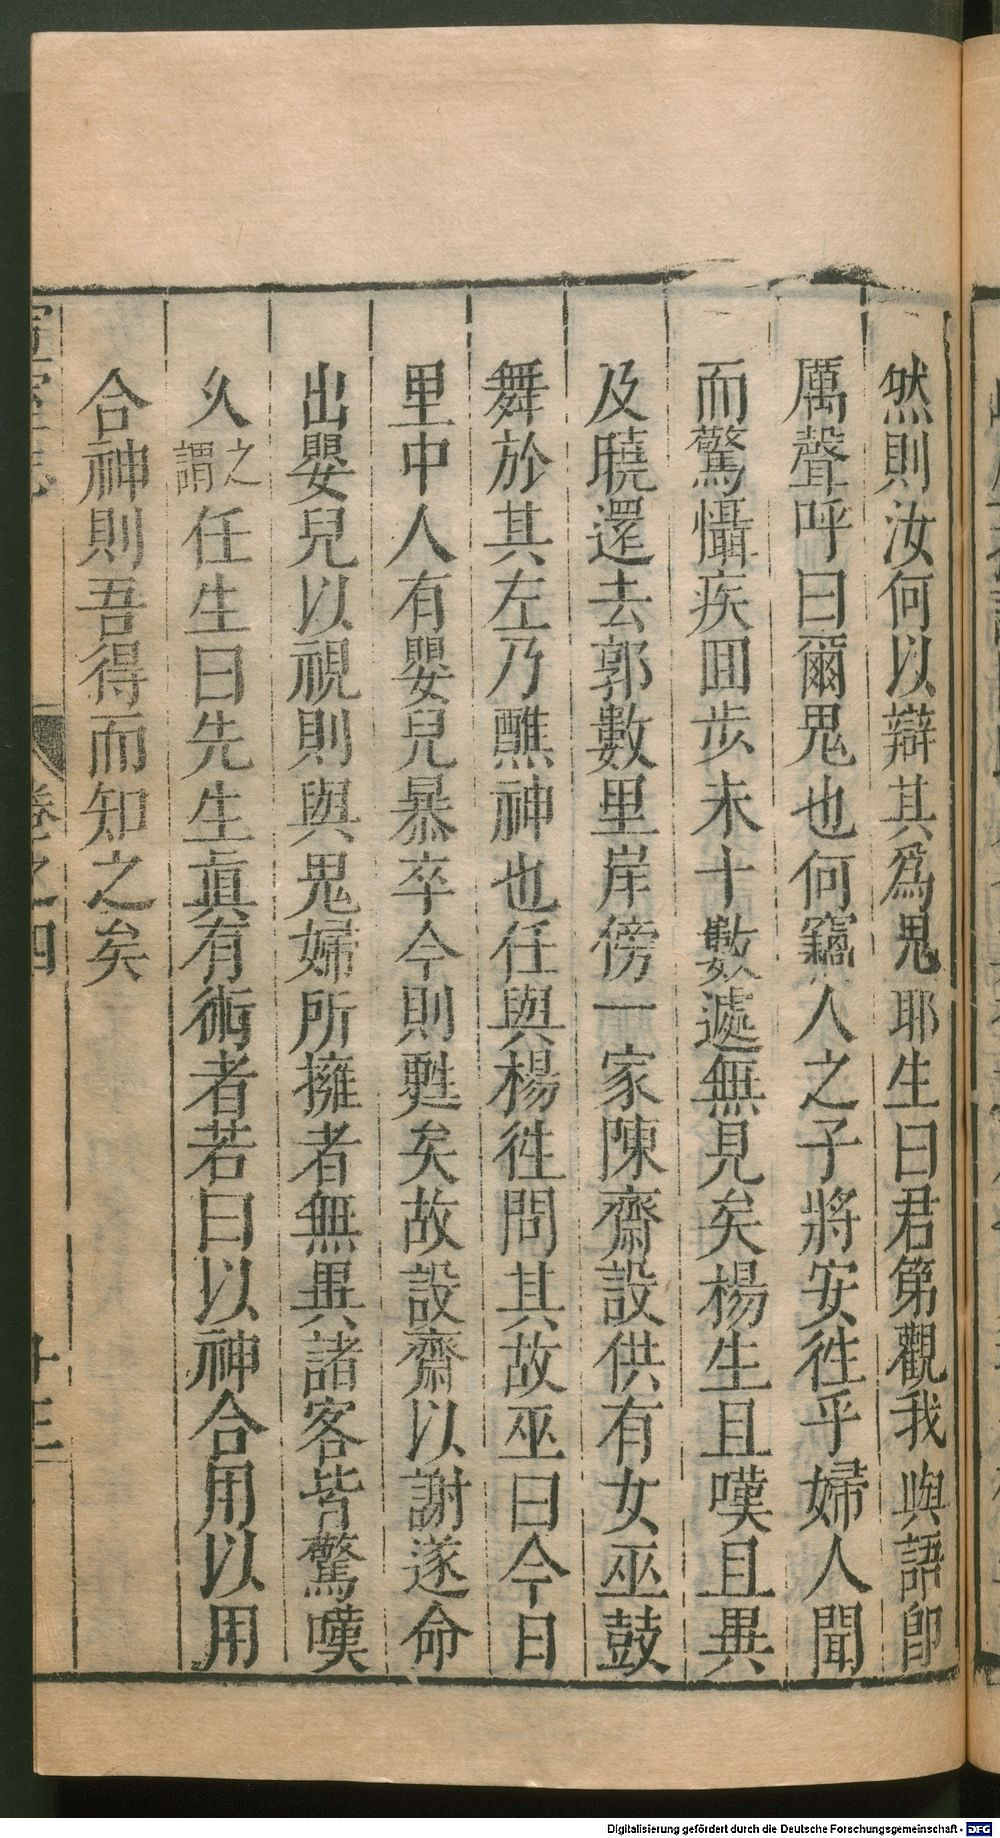 然則汝何以辯其爲鬼耶生曰君第觀我與語即
厲聲呼曰爾鬼也何竊人之子將安徃乎婦人聞
而驚懾疾囬步未十數遽無見矣楊生且嘆且異
及曉還去郭數里岸傍一家陳齋設供有女巫鼓
舞於其左乃醮神也任與楊徃問其故巫曰今日
里中人有嬰兒暴卒今則甦矣故設齋以謝遂命
出嬰兒以視則與鬼婦所擁者無異諸客皆驚嘆
久之謂任生曰先生眞有術者若曰以神合用以用
合神則吾得而知之矣
卷之四
Digitalisierung gefördert durch die Deutsche Forschungsgemeinschaft - DFG